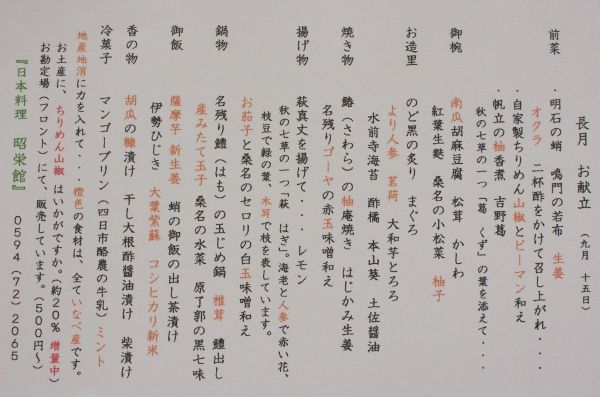 長月 お献立 (九月 十五日)
前菜 ・明石の蛸 鳴門の若布 生姜
オクラ 二杯酢をかけて召し上がれ・・・・
・自家製ちりめん山椒とピーマン和え
・帆立の柚香煮 吉野葛
秋の七草の一つ「葛 くず」の葉を添えて・・・
御椀 南瓜胡麻豆腐 松茸 かしわ
紅葉生麩 桑名の小松菜 柚子
お造里 のど黒の炙り まぐろ
より人参 茗荷 大和芋とろろ
水前寺海苔 酢橘 本山葵 土佐醤油
焼き物 鰆(さわら)の柚庵焼き はじかみ生姜
名残りゴーヤの赤玉味噌和え
揚げ物 萩真丈を揚げて・・・レモン
秋の七草の一つ「萩 はぎ」。海老と人参で赤い花、
枝豆で緑の葉、木耳で枝を表しています。
お茄子と桑名のセロリの白玉味噌和え
鍋物 名残り鱧(はも)の玉じめ鍋 椎茸 鱧出し
産みたて玉子 桑名の水菜 原了郭の黒七味
御飯 薩摩芋 新生姜 蛸の御飯の出し茶漬け
伊勢ひじき 大葉紫蘇 コシヒカリ新米
香の物 胡瓜の糠漬け 干し大根酢醤油漬け 柴漬け
冷菓子 マンゴープリン(四日市酪農の牛乳)ミント
地産地消に力を入れて・・・橙色の食材は、全ていなべ産です。
お土産に、ちりめん山椒 はいかがですか。(約20% 増量中)
お勘定場(フロント)にて、販売しています。(500円~)
『日本料理 昭栄館』 0594(72)2065